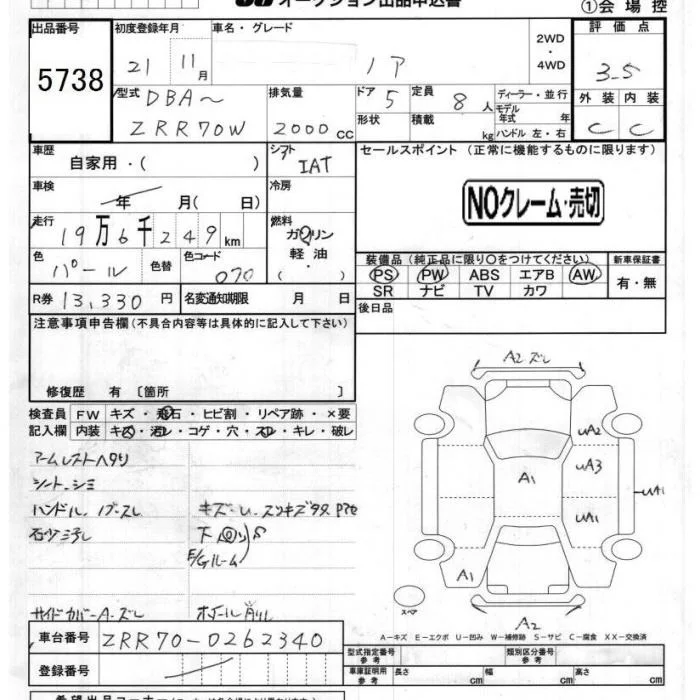 オークション出品申込書
①会場控
出品番号 初度登録年月 車名・グレード 評価点
5738 21 11月 ノア 2WD・4WD 3-5
型式 DBA〜 排気量 ドア 5 定員 8人 ディーラー・並行 外装 内装
ZRR70W 2000cc 形状 積載 kg モデル年式 年 ハンドル 左・右 C C
車歴 シフト セールスポイント (正常に機能するものに限ります)
自家用・( ) IAT
車検 冷房
年 月( 日) NOクレーム・売切
走行 燃料
19万6千249km ガソリン
軽油
・( )
色 パール 色替 色コード 070
装備品 (純正品に限り○をつけてください) 新車保証書
PS PW ABS エアB AW 有・無
SR ナビ TV カワ
R券 13,330円 名変通知期限 月 日 後日品
注意事項申告欄(不具合内容等は具体的に記入して下さい)
修復歴 有 〔箇所 〕
検査員 FW キズ・飛石・ヒビ割・リペア跡・×要
記入欄 内装 キズ・汚レ・コゲ・穴・スレ・キレ・破レ
アームレストヘタリ
シート、シミ
ハンドル、ノブ、スレ
サイドカバーA・ズレ
A2 ズレ
uA2
uA3
A1
uA1
uA1
A1
スペア
A2
A-キズ E-エクボ U-凹み W-補修跡 S-サビ C-腐食 XX-交換済
車台番号 ZRR70-0262340
登録番号
型式指定番号 参考 類別区分番号 参考
車庫証明用 参考 長さ cm 幅 cm 高さ cm